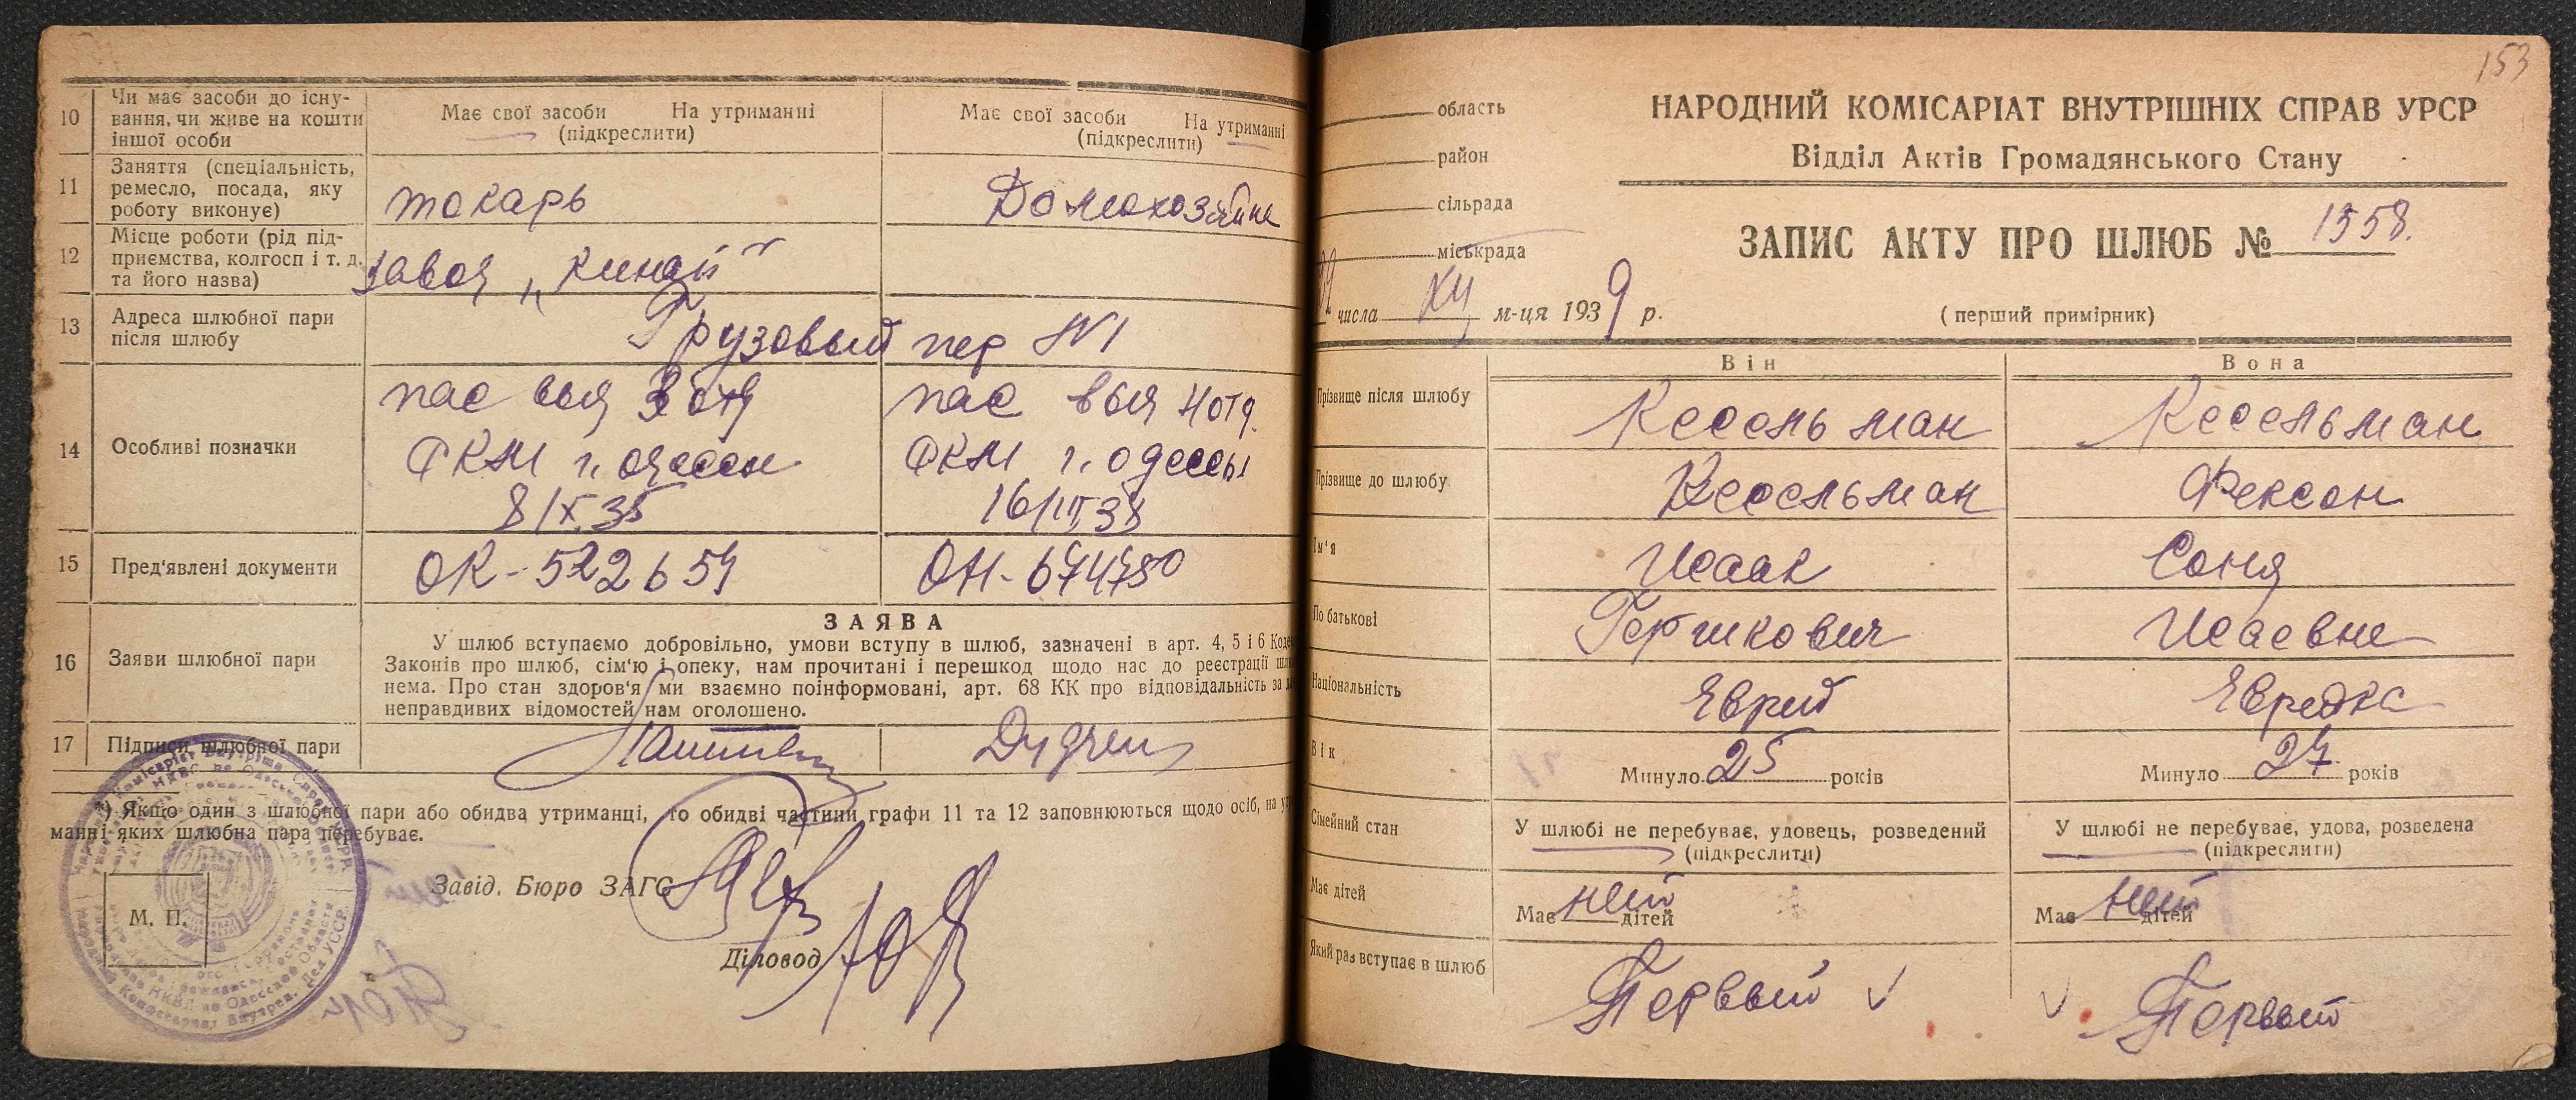 10 Чи має засоби до існу-
вання, чи живе на кошти
іншої особи
Має свої засоби На утриманні
(підкреслити)
Має свої засоби На утриманні
(підкреслити)
11 Заняття (спеціальність,
ремесло, посада, яку
роботу виконує)
токарь
Домохозяйка
12 Місце роботи (рід під-
приємства, колгосп і т. д.
та його назва)
завод
13 Адреса шлюбної пари
після шлюбу
Грузовый пер №1
14 Особливі позначки
пас выд 3 отд
РКМ г. одессы
8/IX 35
пас выд 4 отд.
РКМ г. одессы
16/III 38
15 Пред'явлені документи
ОК-522654
ОН-674750
16 Заяви шлюбної пари
ЗАЯВА
У шлюб вступаємо добровільно, умови вступу в шлюб, зазначені в арт. 4, 5 і 6
Законів про шлюб, сім'ю і опеку, нам прочитані і перешкод щодо нас до реєстрації
нема. Про стан здоров'я ми взаємно поінформовані, арт. 68 КК про відповідальність за
неправдивих відомостей нам оголошено.
17 Підписи шлюбної пари
*) Якщо один з шлюбної пари або обидва утриманці, то обидві частини графи 11 та 12 заповнюються щодо осіб, на
манні яких шлюбна пара перебуває.
Завід. Бюро ЗАГС
М. П.
Діловод
153
область
район
сільрада
міськрада
числа XII м-ця 1939 р.
НАРОДНИЙ КОМІСАРІАТ ВНУТРІШНІХ СПРАВ УРСР
Відділ Актів Громадянського Стану
ЗАПИС АКТУ ПРО ШЛЮБ № 1558.
(перший примірник)
Він
Вона
Прізвище після шлюбу
Кесельман
Кесельман
Прізвище до шлюбу
Кесельман
Фексон
Ім'я
Исаак
Соня
По батькові
Гершкович
Исаевна
Національність
Еврей
Еврейка
Вік
Минуло 25 років
Минуло 27 років
Сімейний стан
У шлюбі не перебуває, удовець, розведений
(підкреслити)
У шлюбі не перебуває, удова, розведена
(підкреслити)
Має дітей
Має нет дітей
Має нет дітей
Який раз вступає в шлюб
Первый
Первый